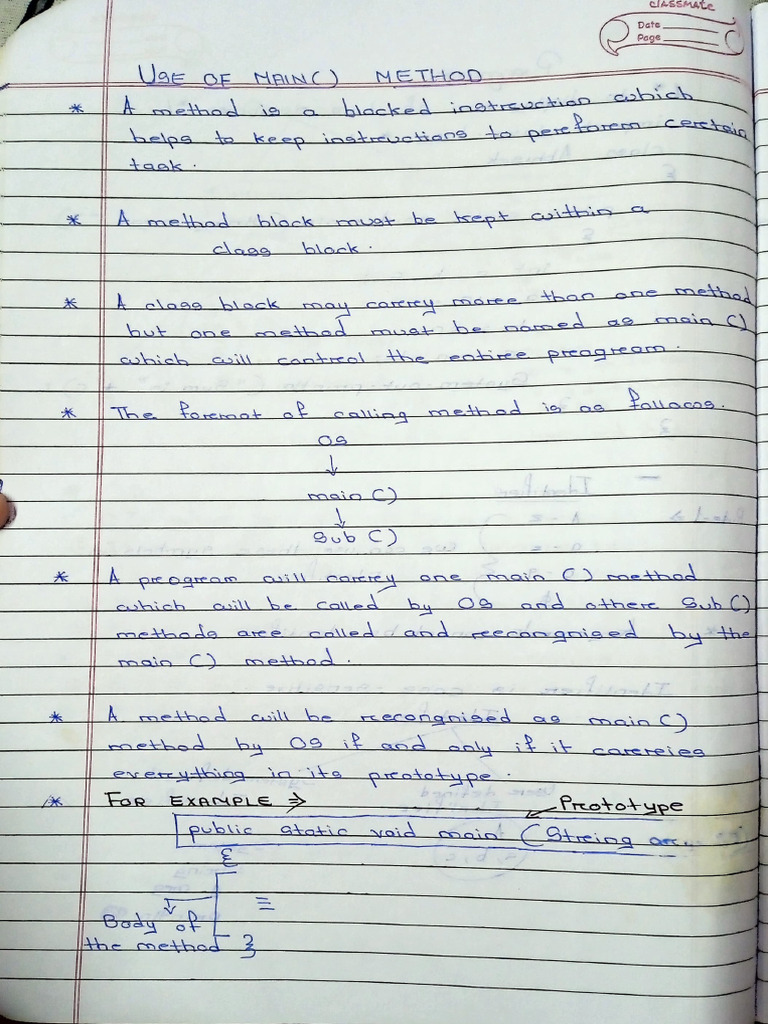 CLASSMATE
Date
Page
USE OF MAIN() METHOD
* A method is a blocked instruction which
helps to keep instructions to perform certain
task.
* A method block must be kept within a
class block.
* A class block may carry more than one method
but one method must be named as main ()
which will control the entire program.
* The format of calling method is as follows.
OS
↓
main ()
↓
Sub ()
* A program will carry one main () method
which will be called by OS and other Sub ()
methods are called and recongnised by the
main () method.
* A method will be recongnised as main ()
method by OS if and only if it carries
everything in its prototype.
* FOR EXAMPLE ⇒ Prototype
public static void main (String ar
{
≡
Body of
the method }